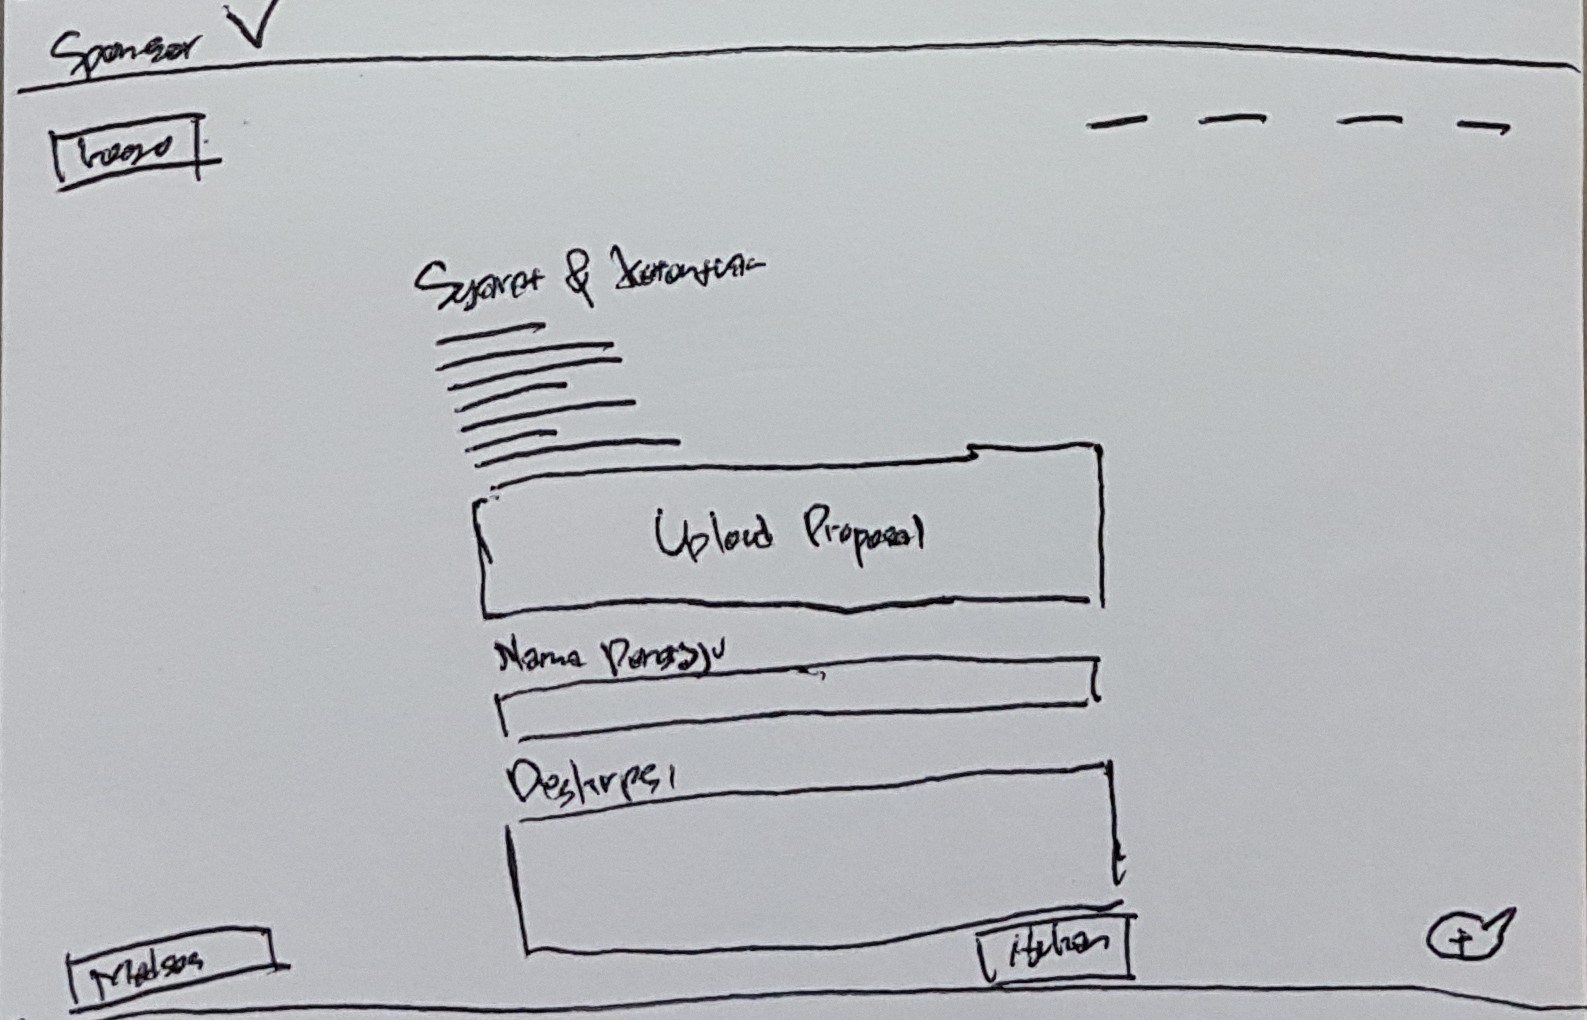 Sponsor
Logo
Syarat & Ketentuan
Upload Proposal
Nama Pengaju
Deskripsi
Medsos